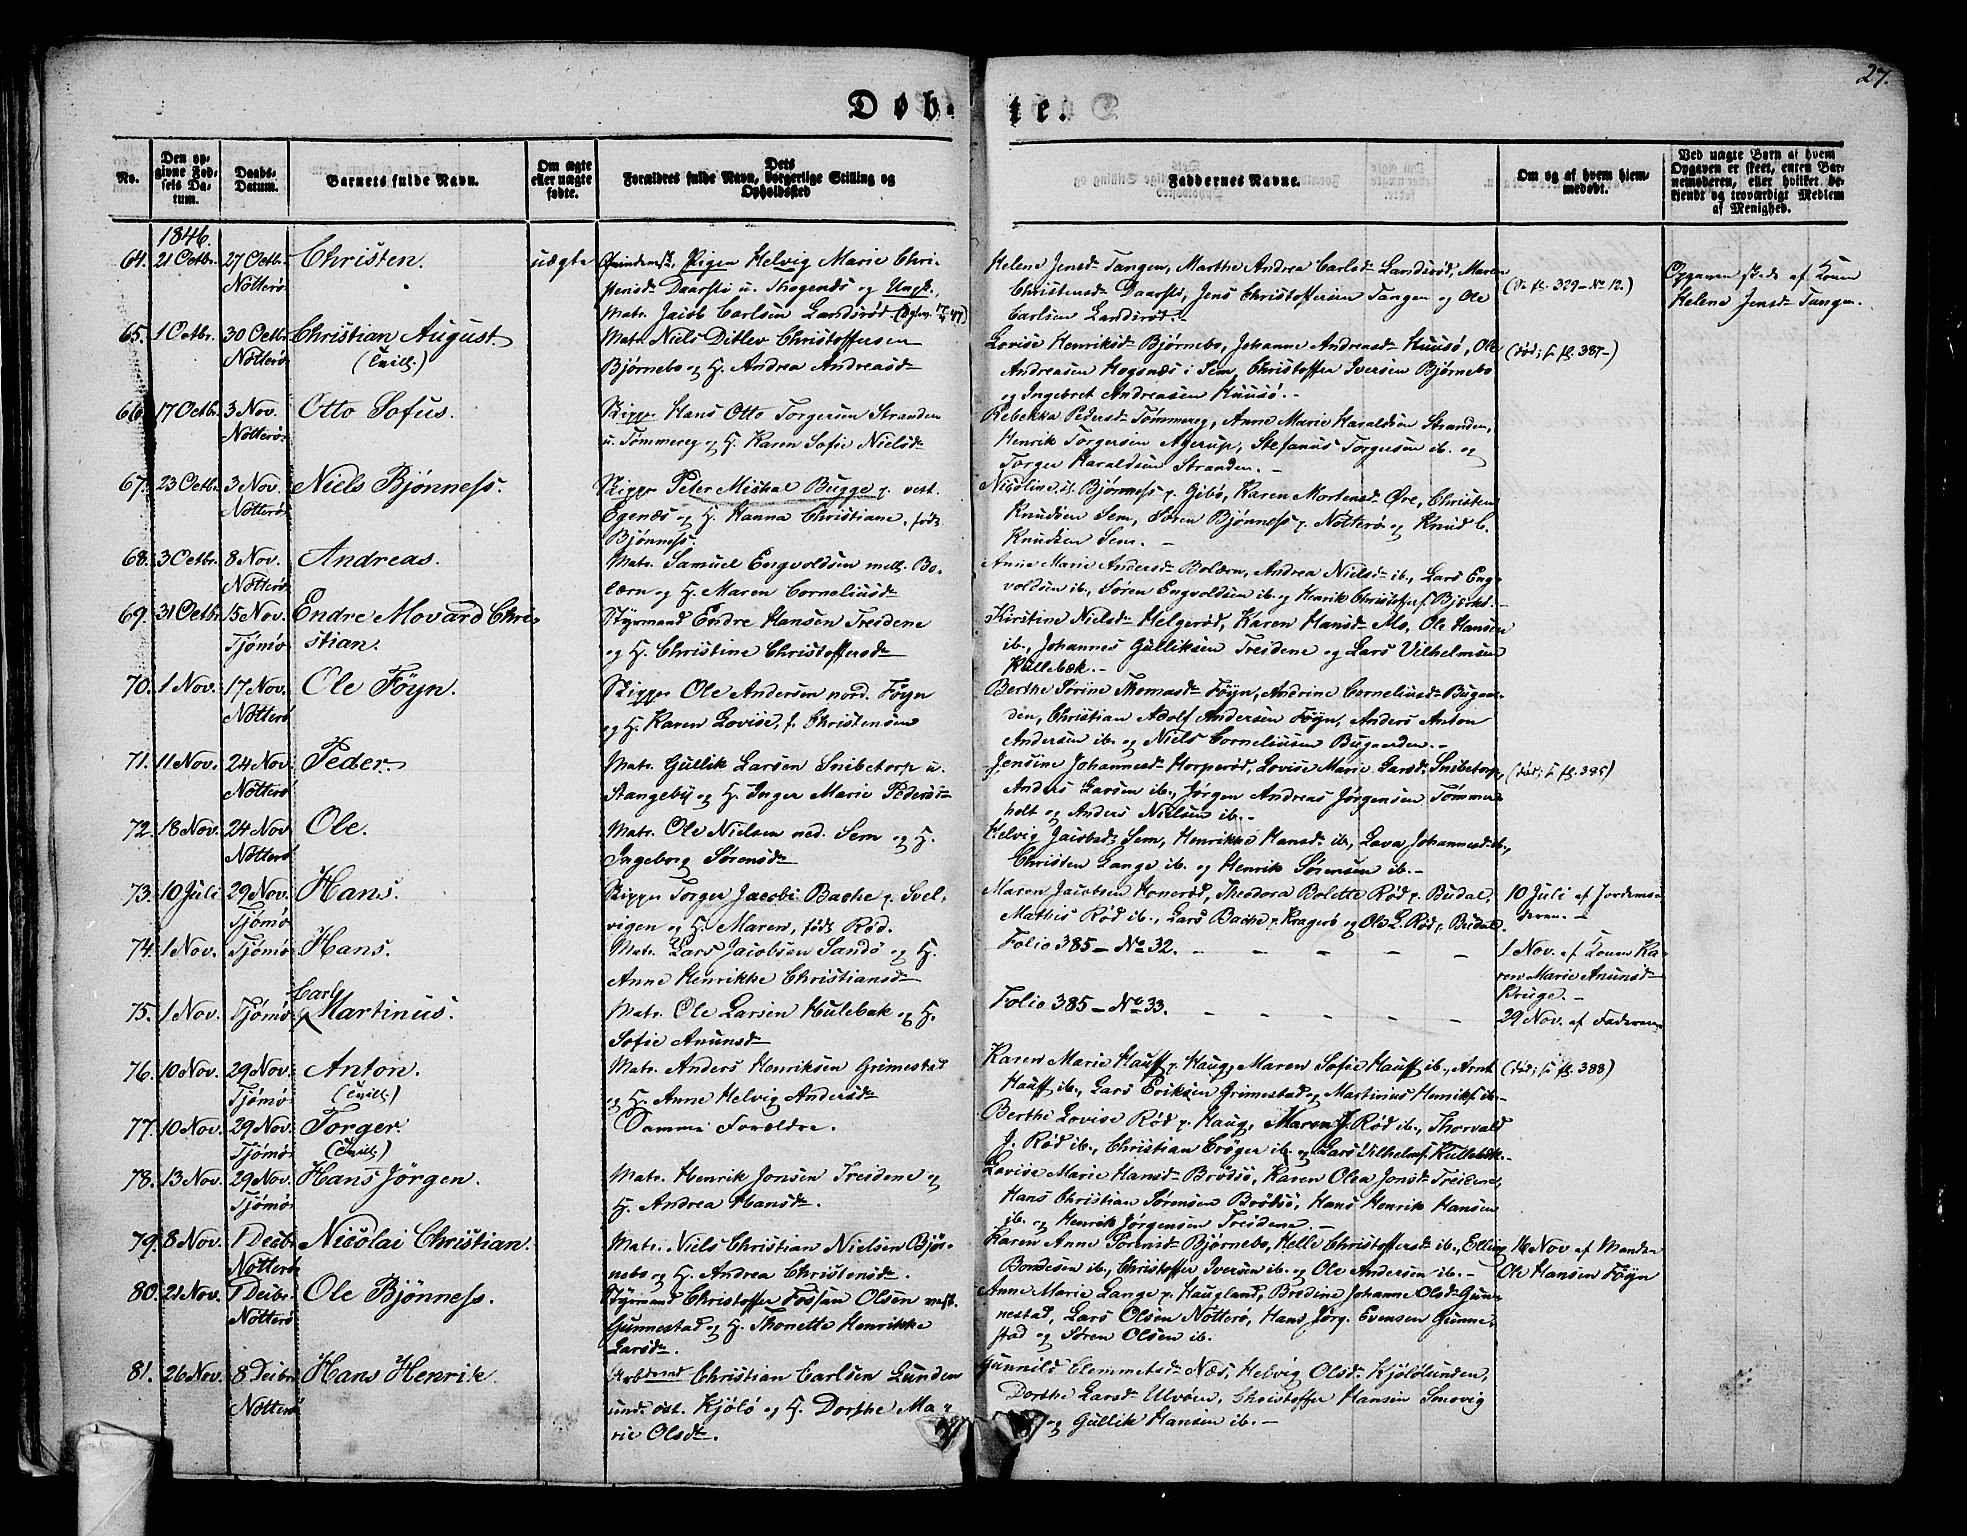 27.
Døb-te.
No.
Den op-
givne Fød-
sels Da-
tum.
Daabs-
Datum.
Barnets fulde Navn.
Om ægte
eller uægte
fødte.
Forældres fulde Navn, borgerlige Stilling og
Opholdssted
Faddernes Navne.
Om og af hvem hjem-
medøbt.
Ved uægte Børn af hvem
Opgaven er skeet, enten Bar-
nemoderen, eller hvilket be-
kjendt og troværdigt Medlem
af Menighed.
1846.
64. 21 Octbr. 27 Octbr. Christen. uægte Pigen Helvig Marie Chri-
Nøtterø stensd. Daarsti u. Thogenæs og Ungk.,
Matr. Jacob Carlsen Landsrød
Helene Jensd. Tangen, Marthe Andrea Carlsd. Landsrød, Maren
Christensd. Daarsti, Jens Christoffersen Tangen og Ole
Carlsen Landsrød.-
(Se fl. 329 - No 12.)
Opgaven skede af Konen
Helene Jensd. Tangen.
65. 1 Octbr. 30 Octbr. Christian August. Matr. Niels Ditlev Christoffersen
Nøtterø (Tvill.) Bjørnebo og H. Andrea Andreasd.
Lovise Henriksd. Bjørnebo, Johanne Andreasd. Huusø, Ole
Andreasen Hogsnæs i Sem, Christoffer Iversen Bjørnebo
og Ingebret Andreasen Huusø.-
(død; s. fl. 387-)
66. 17 Octbr. 3 Nov. Otto Sofus. Skipper Hans Otto Torgersen Stranden
Nøtterø u. Tømmereg og H. Karen Sofie Nielsd.
Rebekka Pedersd. Tømmereg, Anne Marie Haraldsen Stranden,
Henrik Torgersen Agerup, Stefanus Torgersen ib. og
Torger Haraldsen Stranden.-
67. 23 Octbr. 3 Nov. Niels Bjønness. Skipper Peter Michal Bugge p. vest.
Nøtterø Egenæs og H. Hanna Christiane, født
Bjønness.
Bjønness p. Gibø, Karen Mortensd. Øre, Christen
Knudsen Sem, Søren Bjønness p. Nøtterø og Knud C.
Knudsen Sem.-
68. 3 Octbr. 8 Nov. Andreas. Matr. Samuel Engvoldsen mell. Bo-
Nøtterø lærn og H. Maren Corneliusd.
Anne Marie Andersd. Bolærn, Andrea Nielsd. ib., Lars Eng-
voldsen ib., Søren Engvoldsen ib. og Henrik Christoffers. Bjerkø.-
69. 31 Octbr. 15 Nov. Endre Movard Chri-
Tjømø stian.
Styrmand Endre Hansen Treidene
og H. Christine Christoffersd.
Kirstine Nielsd. Helgerød, Karen Hansd. Mo, Ole Hansen
ib., Johannes Gulliksen Treidene og Lars Vilhelmsen
Kullebæk.-
70. 1 Nov. 17 Nov. Ole Føyn. Skipper Ole Andersen nord. Føyn
Nøtterø og H. Karen Lovise, f. Christensen
Berthe Sørine Thomasd. Føyn, Andrine Corneliusd. Bugaar-
den, Christian Adolf Andersen Føyn, Anders Anton
Andersen ib. og Niels Corneliusen Bugaarden.-
71. 11 Nov. 24 Nov. Peder. Matr. Gullik Larsen Snibetorp u.
Nøtterø Stangeby og H. Inger Marie Pedersd.
Jensine Johannesd. Horperød, Lovise Marie Larsd. Snibetorp,
Anders Larsen ib., Jørgen Andreas Jørgensen Tømmer-
holt og Anders Nielsen ib.-
(død; s. fl. 385)
72. 18 Nov. 24 Nov. Ole. Matr. Ole Nielsen ned. Sem og H.
Nøtterø Ingeborg Sørensd.
Helvig Jacobsd. Sem, Henrikke Hansd. ib., Lava Johannesd. ib.,
Christen Lange ib. og Henrik Sørensen ib.-
73. 10 Juli 29 Nov. Hans. Skipper Torger Jacobi Bache p. Svel-
Tjømø vigen og H. Maren, født Rød.
Maren Jacobsen Honerød, Theodora Bolette Rød p. Budal,
Mathis Rød ib., Lars Bache p. Kragerø og Ole L. Rød p. Budal.
10 Juli af Jordemo-
deren.-
74. 1 Nov. Tjømø Hans. Matr. Lars Jacobsen Sandø og H.
Anne Henrikke Christiansd.
Folio 385 - No 32. - - - -
1 Nov. af Konen Ka-
ren Marie Anunsd.
Kruge.-
75. 1 Nov. Tjømø Carl Martinus. Matr. Ole Larsen Hulebak og H.
Sofie Anunsd.
Folio 385 - No 33. - - - - -
29 Nov. af Faderen
76. 10 Nov. 29 Nov. Anton. Matr. Anders Henriksen Grimestad
Tjømø (Tvill.) og H. Anne Helvig Andersd.
Karen Marie Hauff p. Haug, Maren Sofie Hauff ib., Arnt
Hauff ib., Lars Eriksen Grimestad og Martinius Henriks. ib.-
(død; s. fl. 388)
77. 10 Nov. 29 Nov. Torger. Samme Forældre.
Tjømø (Tvill.)
Berthe Lovise Rød p. Haug, Maren J. Rød ib., Thorvald
J. Rød ib., Christian Crøger ib. og Lars Vilhelms. Kullebæk.-
78. 13 Nov. 29 Nov. Hans Jørgen. Matr. Henrik Jonsen Treidene og
Tjømø H. Andrea Hansd.
Lovise Marie Hansd. Brødsø, Karen Olea Jonsd. Treidene,
Hans Christian Sørensen Brødsø, Hans Henrik Hansen
ib. og Henrik Jørgensen Treidene.-
79. 8 Nov. 1 Decbr. Nicolai Christian. Matr. Niels Christian Nielsen Bjør-
Nøtterø nebo og H. Andrea Christensd.
Karen Anne Sørensd. Bjørnebo, Helle Christoffersd. ib., Elling
Bondesen ib., Christoffer Iversen ib. og Ole Andersen ib.-
16 Nov af Manden
Ole Hansen Føyn
80. 21 Nov. 1 Decbr. Ole Bjønness. Styrmand Christoffer Fossan Olsen vest.
Nøtterø Gunnestad og H. Thonette Henrikke
Larsd.
Anne Marie Lange p. Haugland, Bredine Johanne Olsd. Gun-
nestad, Lars Olsen Nøtterø, Hans Jørg. Evensen Gunne-
stad og Søren Olsen ib.
81. 26 Nov. 8 Decbr. Hans Henrik. Arbmd. Christian Carlsen Lunden
Nøtterø und. øst. Kjølø og H. Dorthe Ma-
rie Olsd.
Gunnild Clemmetsd. Næs, Helvig Olsd. Kjølølunden,
Dorthe Larsd. Ulvøen, Christoffer Hansen Smovig
og Gullik Hansen ib.-